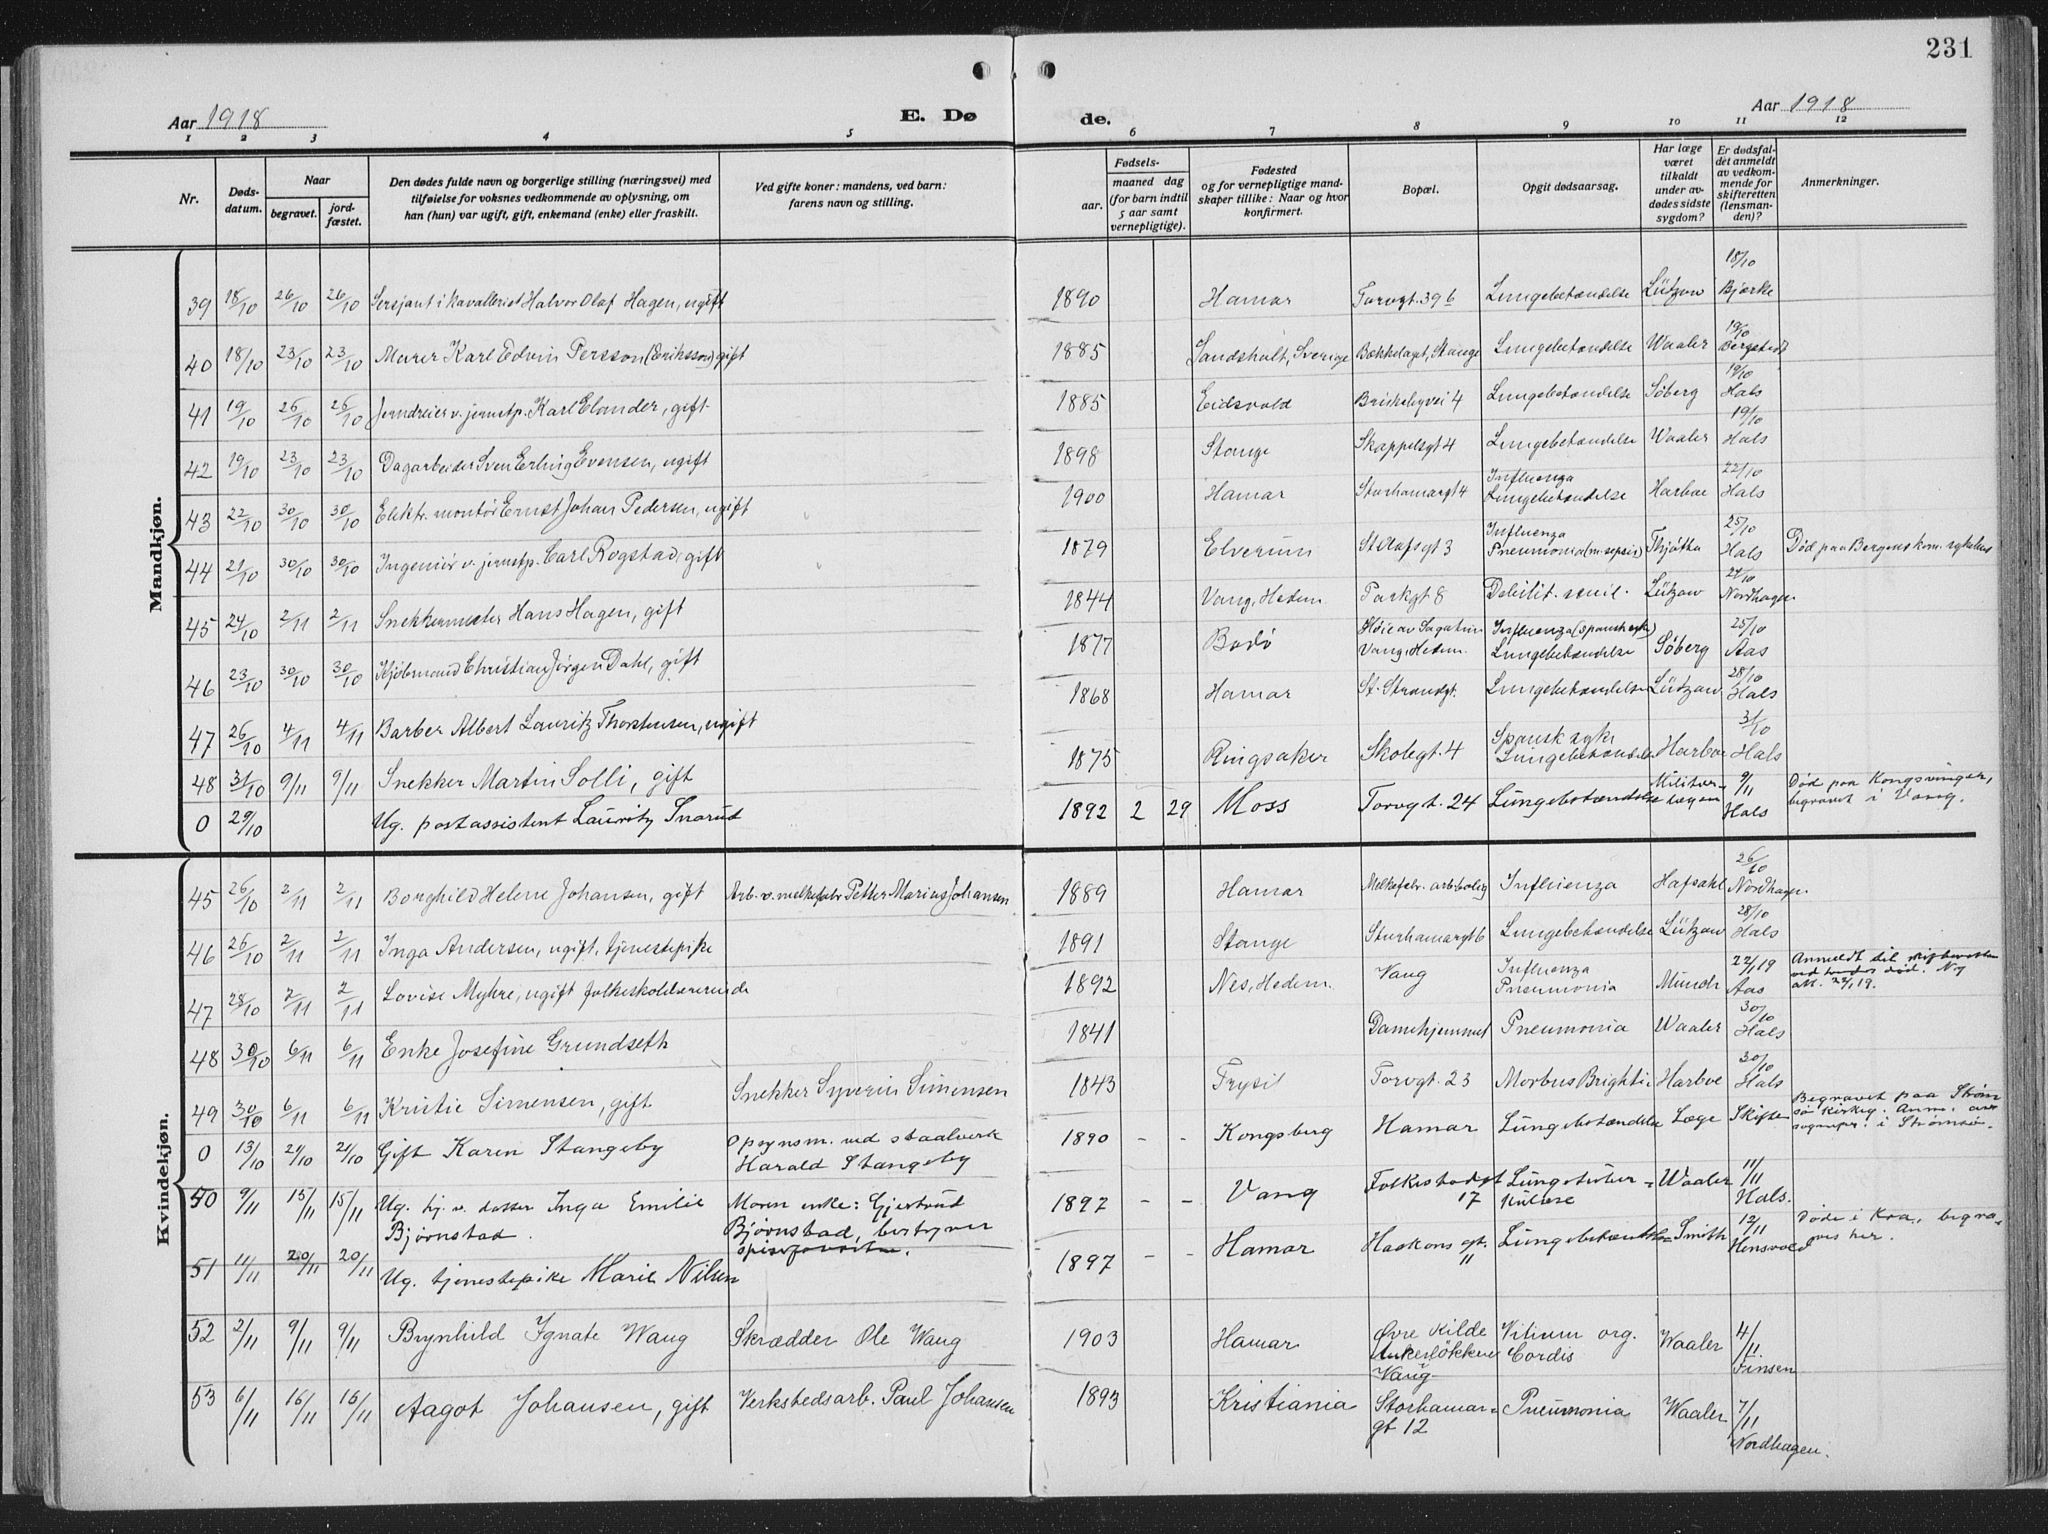 231
Aar 1918
E. Dø
de.
Aar 1918
1 2 3 4 5 6 7 8 9 10 11 12
Nr.
Døds-
datum.
Naar
begravet.
jord-
fæstet.
Den dødes fulde navn og borgerlige stilling (næringsvei) med
tilføielse for voksnes vedkommende av oplysning, om
han (hun) var ugift, gift, enkemand (enke) eller fraskilt.
Ved gifte koner: mandens, ved barn:
farens navn og stilling.
Fødsels-
aar.
maaned dag
(for barn indtil
5 aar samt
vernepligtige).
Fødested
og for vernepligtige mand-
skaper tillike: Naar og hvor
konfirmert.
Bopæl.
Opgit dødsaarsag.
Har læge
været
tilkaldt
under av-
dødes sidste
sygdom?
Er dødsfal-
det anmeldt
av vedkom-
mende for
skifteretten
(lensman-
den)?
Anmerkninger.
Mandkjøn.
39 18/10 26/10 26/10 Sersjant i kavalleriet Halvor Olaf Hagen, ugift 1890 Hamar Torvgt. 39 b Lungebetændelse Lützow 18/10 Bjerke
40 18/10 23/10 23/10 Murer Karl Edvin Persson (Eriksson) gift 1885 Landshult, Sverige Bækkelaget, Stange Lungebetændelse Waaler 19/10 Bergstedt
41 19/10 26/10 26/10 Jerndreier v. jernstp. Karl Elander, gift 1885 Eidsvold Briskebyvei 4 Lungebetændelse Söberg 19/10 Hals
42 19/10 23/10 23/10 Dagarbeider Sven Erling Evensen, ugift 1898 Stange Skappelsgt 4 Lungebetændelse Waaler 19/10 Hals
43 22/10 30/10 30/10 Elektr. montör Ernst Johan Pedersen, ugift 1900 Hamar Storhamargt 4 Influenza Lungebetændelse Harboe 22/10 Hals
44 21/10 30/10 30/10 Ingeniör v. jernstp. Carl Rogstad, gift 1879 Elverum St. Olafsgt 3 Influenza Pneumonia (m. sepsis) Thjötta 25/10 Hals Död paa Bergens kom. sykehus
45 24/10 2/11 2/11 Snekkermester Hans Hagen, gift 1844 Vang, Hedem. Parkgt 8 Debilit. senil. Lützow 24/10 Nordhagen
46 23/10 30/10 30/10 Kjöbmand Christian Jörgen Dahl, gift 1877 Bodö Höie av Sagatun Vang, Hedem. Influenza (spansk syke) Lungebetændelse Söberg 25/10 Aas
47 26/10 4/11 4/11 Barber Albert Lauritz Thorstensen, ugift 1868 Hamar St. Strandgt. Lungebetændelse Lützow 28/10 Hals
48 31/10 9/11 9/11 Snekker Martin Solli, gift 1875 Ringsaker Skolegt. 4 Spansk syke Lungebetændelse Harboe 31/10 Hals
0 29/10 Ug. postassistent Lauritz Snarud 1892 2 29 Moss Torvgt. 24 Lungebetændelse Militær-lægen 9/11 Hals Död paa Kongsvinger, begravet i Vang.
Kvindekjøn.
45 26/10 2/11 2/11 Borghild Helene Johansen, gift Arb. v. melkefabr Petter Marius Johansen 1889 Hamar Melkefabr. arb.bolig Influenza Hafsahl 26/10 Nordhagen
46 26/10 2/11 2/11 Inga Andersen, ugift, tjenestepike 1891 Stange Storhamargt 6 Lungebetændelse Lützow 28/10 Hals
47 28/10 2/11 2/11 Lovise Myhre, ugift folkeskolelærerinde 1892 Nes, Hedem. Vang Influenza Pneumonia Munch 22/1 19 Aas Anmeldt til skifteretten ved død. Ny att. 22/1 19.
48 30/10 6/11 6/11 Enke Josefine Grundseth 1841 Damehjemmet Pneumonia Waaler 30/10 Hals
49 30/10 6/11 6/11 Kristie Simensen, gift Snekker Syverin Simensen 1843 Trysil Torvgt. 23 Morbus Brightii Harboe 30/10 Hals
0 13/10 21/10 21/10 Gift Karen Stangeby Opsynsm. ved staalverk Harald Stangeby 1890 - - Kongsberg Hamar Lungebetændelse Læge Skifter Begravet paa Strömsö kirkeg. Anm. i Strömsö.
50 9/11 15/11 15/11 Ug. hj. v. datter Inga Emilie Bjørnstad. Moren enke: Gjertrud Bjørnstad, bestyrer spiseforretn. 1897 - - Vang Folkestadgt 17 Lungetuberkulose Waaler 11/11 Hals.
51 11/11 20/11 20/11 Ug. tjenestepike Marie Nilsen 1897 - - Hamar Haakons gt. 11 Lungebetændelse Smith 12/11 Hensvold Döde i Kra., begraves her.
52 2/11 9/11 9/11 Brynhild Ignate Wang Skrædder Ole Wang 1903 Hamar Øvre Kilde Ankerlökken Vang Vitium org. Cordis Waaler 4/11 Finsen
53 6/11 16/11 16/11 Aagot Johansen, gift Verkstedsarb. Paul Johansen 1893 Kristiania Storhamar-gt 12 Pneumonia Waaler 7/11 Nordhagen.